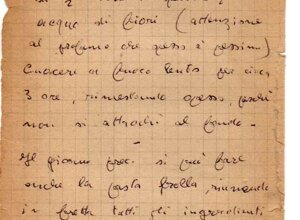 acqua di fiori (attenzione
al profumo che spesso è pessimo)
Cuocere a fuoco lento per circa
3 ore, rimestando spesso, perché
non si attacchi al fondo.
Il giorno prec. si può fare
anche la pasta frolla, riunendo
in fretta tutti gli ingredienti